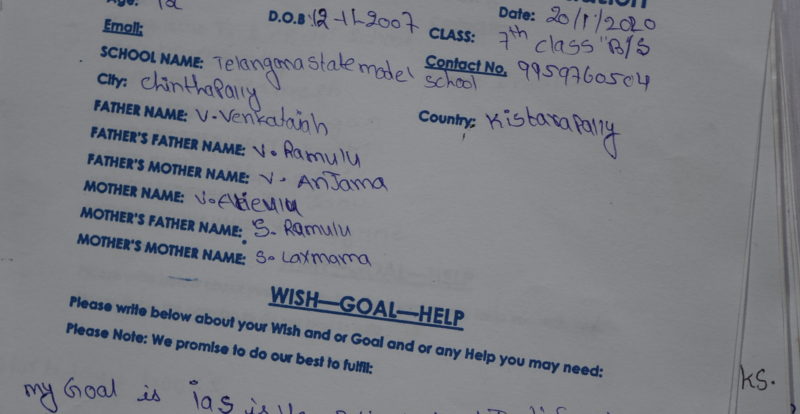 Age: 12
D.O.B: 12-11-2007
Date: 20/1/2020
Email:
CLASS: 7th class "B/S
SCHOOL NAME: Telangana state model school
Contact No. 9959760504
City: Chinthapally
FATHER NAME: V. Venkataiah
Country: Kistarapally
FATHER'S FATHER NAME: V. Ramulu
FATHER'S MOTHER NAME: V. Anjama
MOTHER NAME: V.
MOTHER'S FATHER NAME: S. Ramulu
MOTHER'S MOTHER NAME: S. Laxmama
WISH—GOAL—HELP
Please write below about your Wish and or Goal and or any Help you may need:
Please Note: We promise to do our best to fulfil:
KS.
my Goal is ias